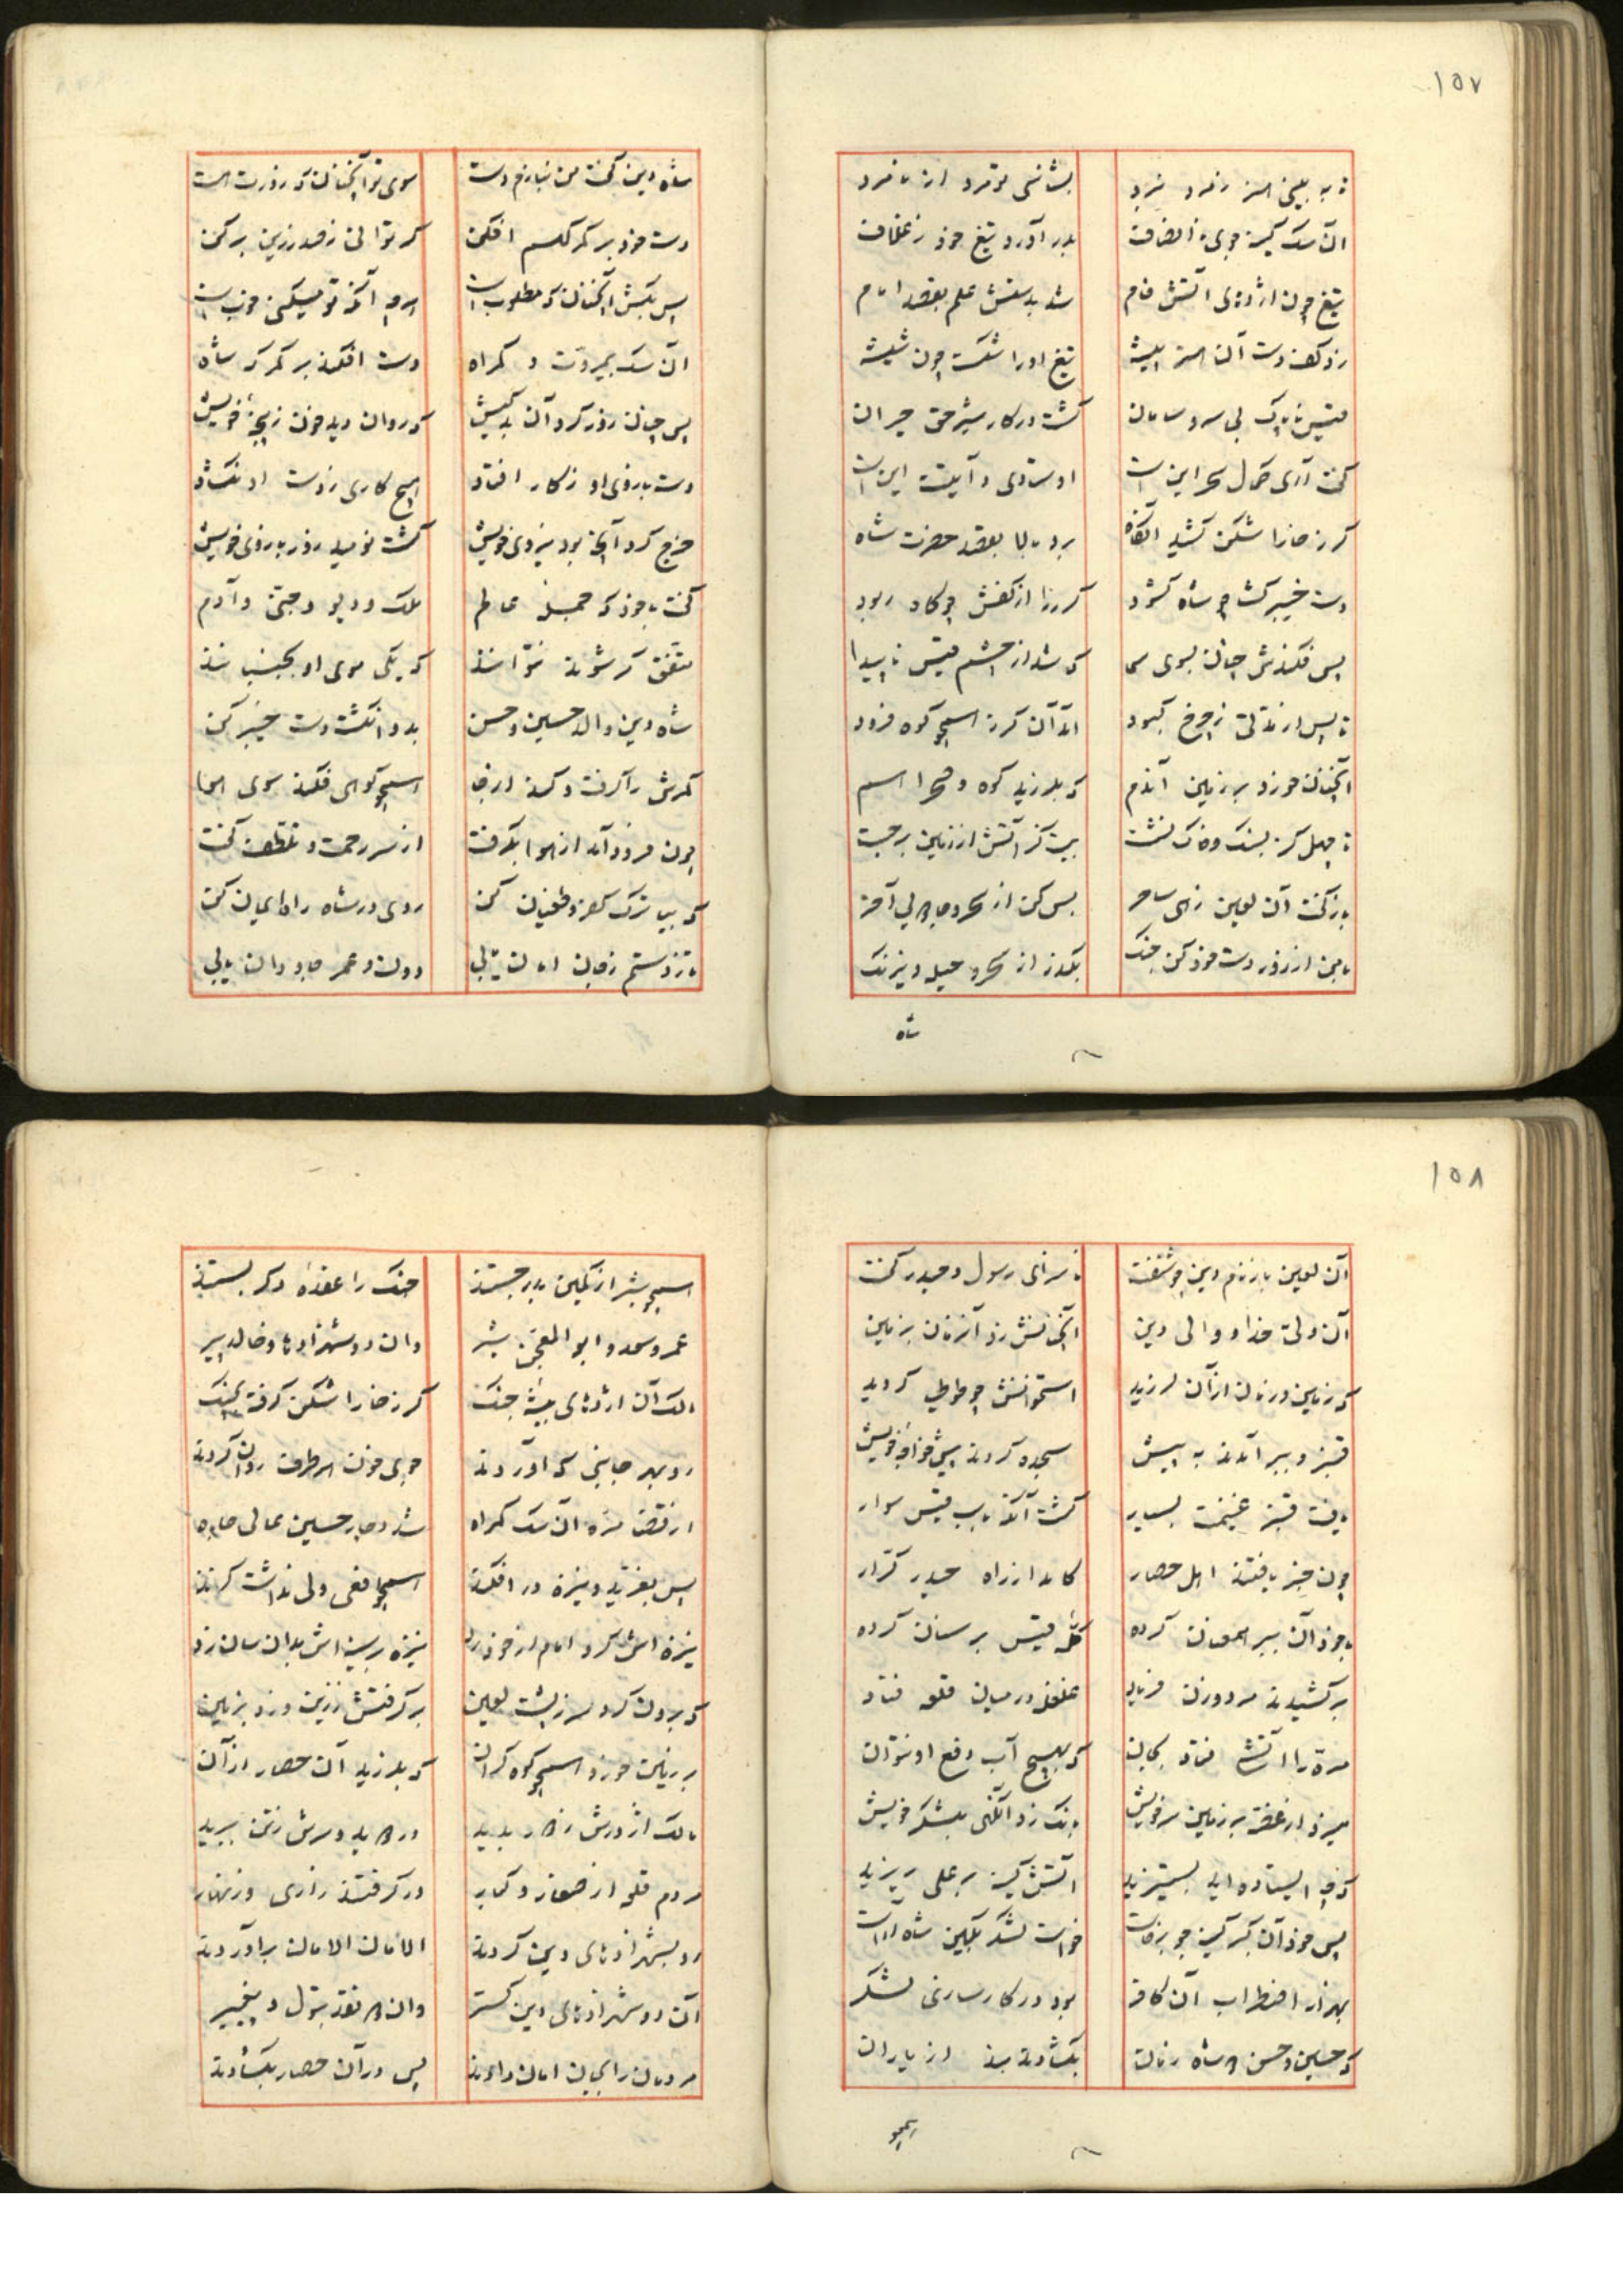 ١٥٧
تا به بینی هنر ز مرد نبرد بشناسی تو مرد از نامرد
آن سگ کینه جوی نا انصاف بدر آورد تیغ خود ز غلاف
تیغ چون اژدهای آتش فام شد بدستش علم بقصد امام
زد کف دست آن هنر پیشه تیغ او را شکست چون شیشه
قیس ناپاک بی سر و سامان گشت در کار شیر حق حیران
گفت آری کمال سحر این است اوستادی و آیت این است
گرز خارا شکن کشید آنگاه برد بالا بقصد حضرت شاه
دست خیبر گشا چو شاه گشود گرز را از کفش چو کاه ربود
پس فکندش چنان بسوی سما که شد از چشم قیس ناپیدا
تا پس از مدتی ز چرخ کبود آمد آن گرز همچو کوه فرود
آنچنان خورد بر زمین آندم که بلرزید کوه و صحرا هم
تا چهل گز بسنگ و خاک نشست بیست گز آتش از زمین برجست
باز گفت آن لعین زهی ساحر بس کن از سحر و جادویی آخر
با من از زور دست خود کن جنگ بگذر از سحر و حیله و نیرنگ
شاه
شاه دین گفت من نیازم دست سوی تو آنچنانکه زورت هست
دست خود بر کمر گهم افکن گر توانی ز صدر زین برکن
پس بکش آنچنانکه مطلوب است هرچه آنکه تو میکنی خوب است
آن سگ بیمروت و گمراه دست افکند بر کمرگه شاه
پس چنان زور کرد آن بدکیش که روان دید خون ز پنجه خویش
دست و بازوی او ز کار افتاد هیچ کاری ز دست او نگشاد
خرج کرد آنچه بود نیروی خویش گشت نومید زور بازوی خویش
گفت با خود که جمله عالم ملک و دیو و جنی و آدم
متفق گر شوند نتوانند که یکی موی او بجنبانند
شاه دین والد حسین و حسن بدو انگشت دست خیبر کن
کمرش را گرفت و کند از جا همچو کوهی فکند سوی هوا
چون فرود آمد از هوا بگرفت از سر رحمت و تلطف گفت
که بیا ترک کفر و طغیان کن روی در شاه راه ایمان کن
تا ز دستم بجان امان یابی دولت و عمر جاودان یابی
١٥٨
آن لعین باز نام دین چو شنفت ناسزای رسول و حیدر گفت
آن ولی خدا و والی دین آنچنانش زد آنزمان بزمین
که زمین و زمان از آن لرزید استخوانش چو طوطی گردید
قنبر و ببر آمدند به پیش سجده کردند پیش خواجه خویش
یافت قنبر غنیمت بسیار گشت آنگه باسب قیس سوار
چون خبر یافتند اهل حصار کامد از راه حیدر کرار
با خود آن ببر همعنان کرده کله قیس بر سنان کرده
برکشیدند مرد و زن فریاد غلغل در میان قلعه فتاد
مره را آتش فتاد بجان که بهیچ آب دفع او نتوان
میزد از غصه بر زمین سر خویش بانگ زد آنگهی بلشکر خویش
که چه ایستاده اید بستیزید آتش کینه بر علی ریزید
پس خود آن گبر کینه جو برخاست خواست لشکر بکین شاه آراست
بهزار اضطراب آن کافر بود در کارسازی لشکر
که حسین و حسن دو شاه زمان بگشادند بند از یاران
همچو
همچو شیر از کمین بدر جستند جنگ را عقده در کمر بستند
عمر و سعد و ابو المعجن شیر وان دو شهزاده و خالد پیر
مالک آن اژدهای بیشه جنگ گرز خارا شکن گرفته بچنگ
رو بهر جانبی که آوردند جوی خون هر طرف روان کردند
از قضا مره آن سگ گمراه شد دچار حسین عالی جاه
پس بغرید و نیزه در افکند همچو افعی ولی نداشت گزند
نیزه اش را گرد امام از خود رد نیزه بر سینه اش بدان سان زد
که برون کرد سر ز پشت لعین برگرفتش ز زین و زد بزمین
بر زمین خورد همچو کوه گران که بلرزید آن حصار از آن
مالک اژدرش ز دور بدید در دوید و سرش ز تن ببرید
مردم قلعه از صغار و کبار در گرفتند زاری و زنهار
رو بشهزادهای دین کردند الامان الامان برآوردند
آن دو شهزادهای دین گستر وان دو نقد بتول و پیغمبر
مردمان را بجان امان دادند پس در آن حصار بگشادند